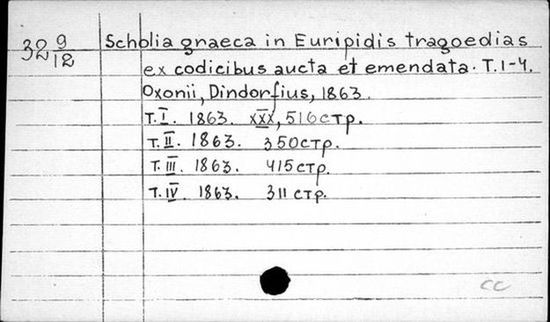 32 9/12
Scholia graeca in Euripidis tragoedias
ex codicibus aucta et emendata. T. 1-4.
Oxonii, Dindorfius, 1863.
Т. I. 1863. XXX, 516 стр.
Т. II. 1863. 350 стр.
Т. III. 1863. 415 стр.
Т. IV. 1863. 311 стр.
CC